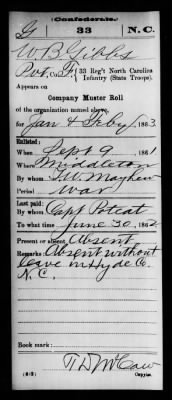 Confederate.
G 33 N.C.
W B Gibbs
Pvt, Co. F, 33 Reg't North Carolina
Infantry (State Troops).
Appears on
Company Muster Roll
of the organization named above,
for Jan & Feby, 1863.
Enlisted:
When Sept 9, 1861
Where Middleton
By whom T. W. Mayhew
Period War
Last paid:
By whom Capt Poteat
To what time June 30, 1862.
Present or absent Absent
Remarks: Absent without
leave in Hyde Co.
N. C.
Book mark:
T D McCaw
Copyist.